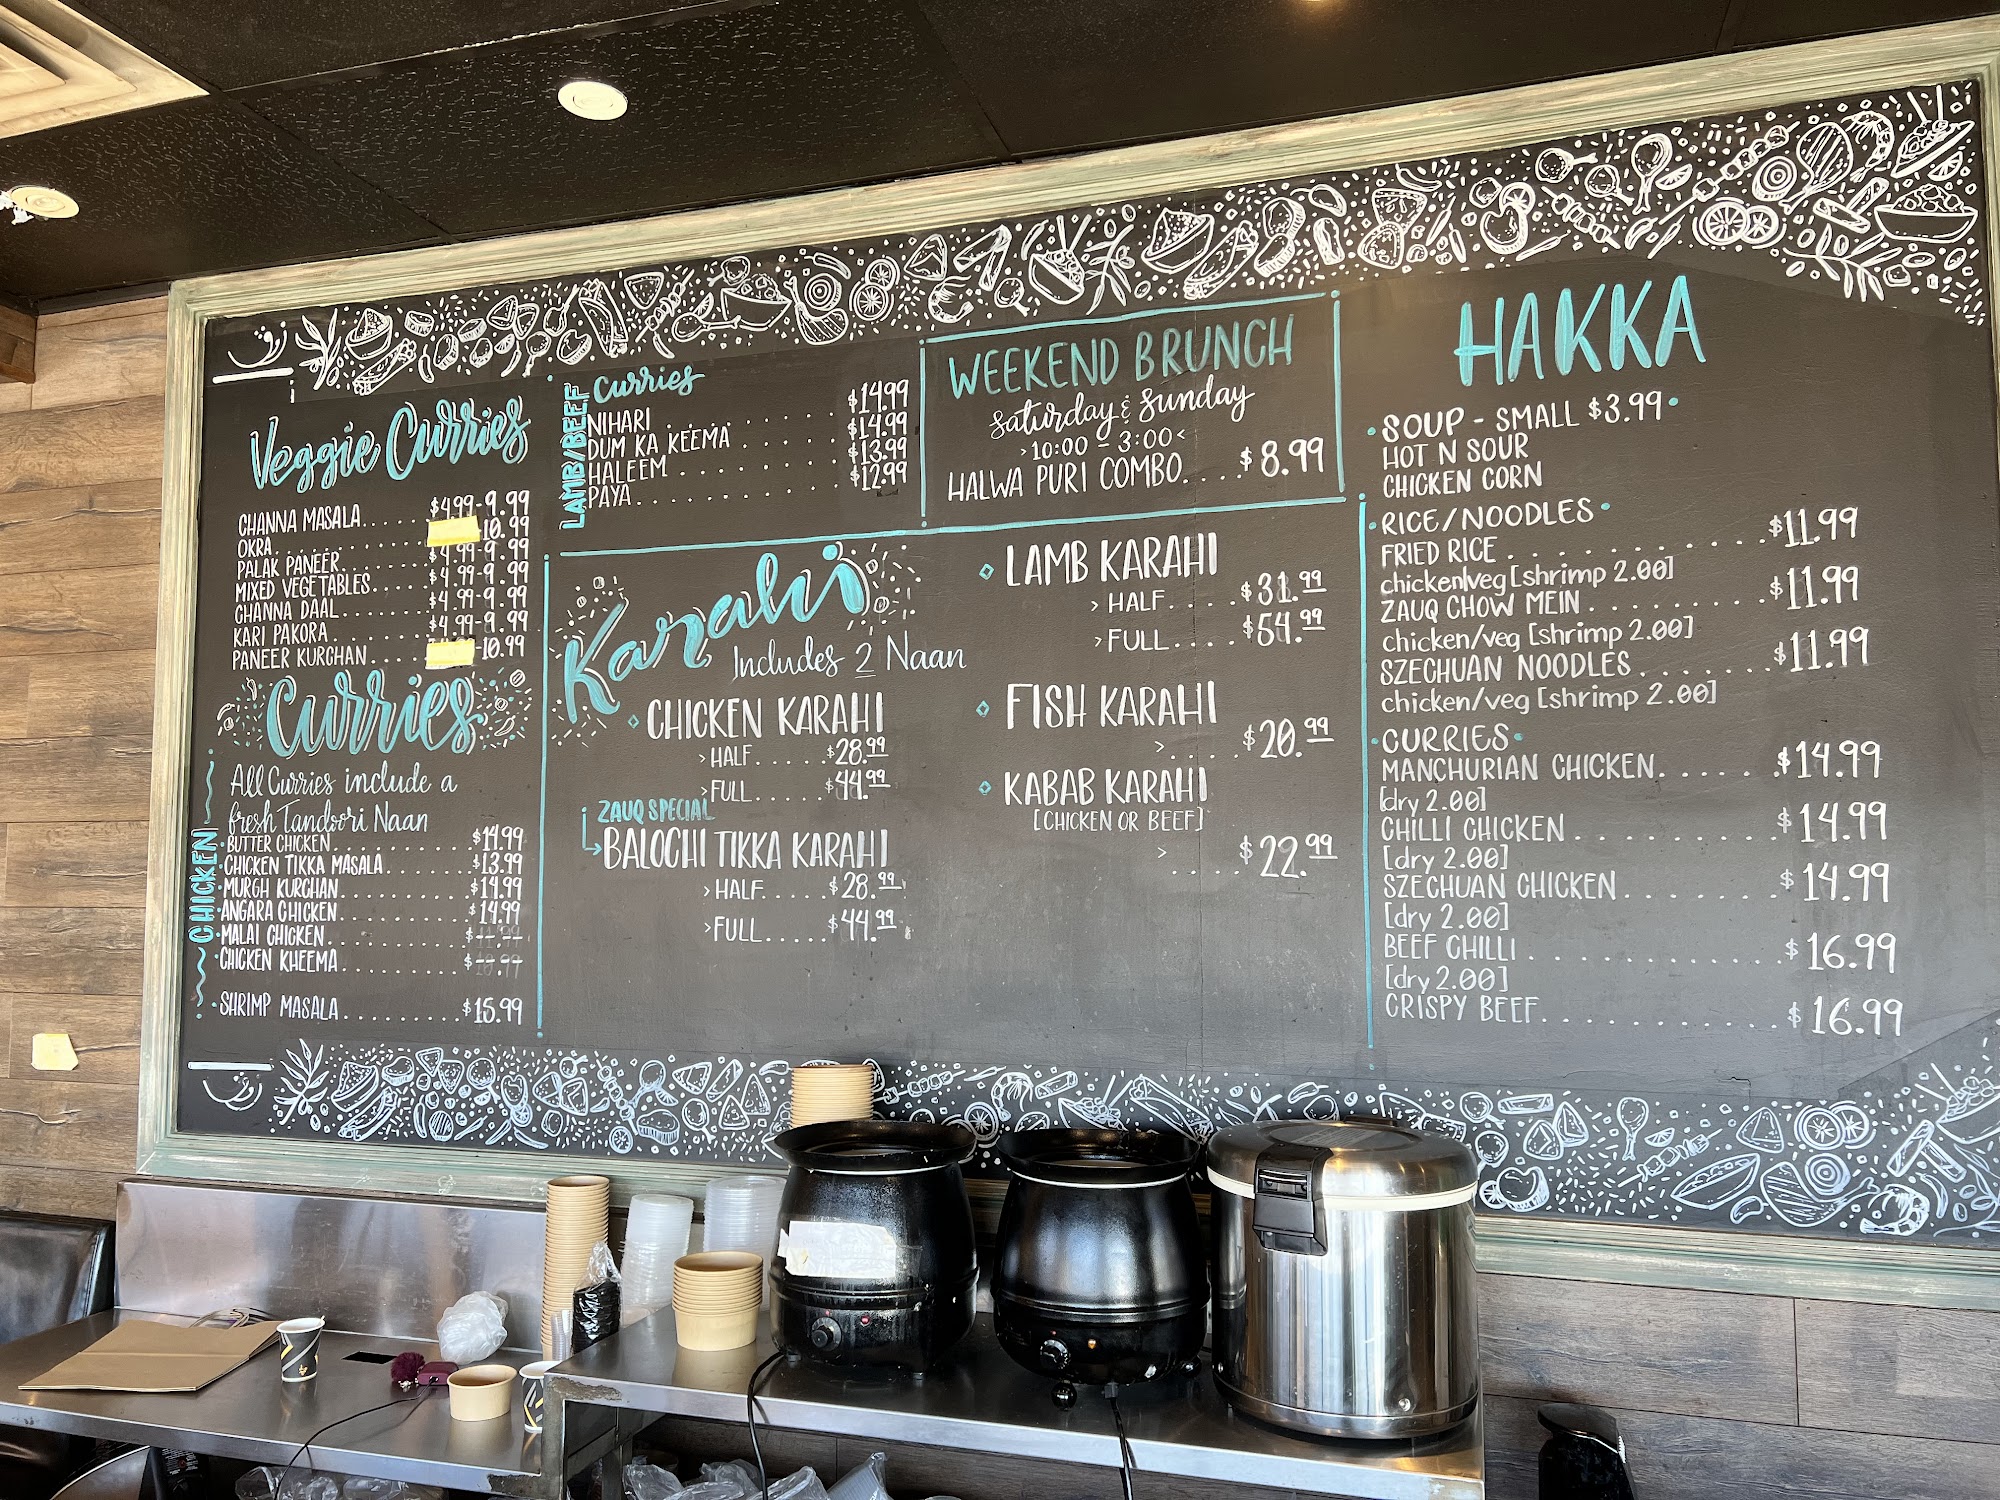 Veggie Curries
CHANNA MASALA......$4.99-9.99
OKRA..........10.99
PALAK PANEER.......$4.99-9.99
MIXED VEGETABLES...$4.99-9.99
CHANNA DAAL.......$4.99-9.99
KARI PAKORA.......$4.99-9.99
PANEER KURCHAN....-10.99
Curries
All Curries include a
fresh Tandoori Naan
CHICKEN
BUTTER CHICKEN..........$14.99
CHICKEN TIKKA MASALA.......$13.99
MURGH KURCHAN..........$14.99
ANGARA CHICKEN..........$14.99
MALAI CHICKEN..........$--.--
CHICKEN KHEEMA.........$--.--
SHRIMP MASALA.........$15.99
LAMB/BEEF Curries
NIHARI..........$14.99
DUM KA KEEMA.......$14.99
HALEEM..........$13.99
PAYA...........$12.99
WEEKEND BRUNCH
Saturday & Sunday
>10:00 - 3:00<
HALWA PURI COMBO.....$8.99
Karahi
Includes 2 Naan
CHICKEN KARAHI
>HALF......$28.99
>FULL......$44.99
ZAUQ SPECIAL
BALOCHI TIKKA KARAHI
>HALF.....$28.99
>FULL.....$44.99
LAMB KARAHI
>HALF.....$31.99
>FULL.....$54.99
FISH KARAHI
>.....$20.99
KABAB KARAHI
[CHICKEN OR BEEF]
>.....$22.99
HAKKA
•SOUP - SMALL $3.99•
HOT N SOUR
CHICKEN CORN
•RICE/NOODLES•
FRIED RICE............$11.99
chicken/veg [shrimp 2.00]
ZAUQ CHOW MEIN.........$11.99
chicken/veg [shrimp 2.00]
SZECHUAN NOODLES.......$11.99
chicken/veg [shrimp 2.00]
•CURRIES•
MANCHURIAN CHICKEN......$14.99
[dry 2.00]
CHILLI CHICKEN..........$14.99
[dry 2.00]
SZECHUAN CHICKEN........$14.99
[dry 2.00]
BEEF CHILLI.............$16.99
[dry 2.00]
CRISPY BEEF............$16.99